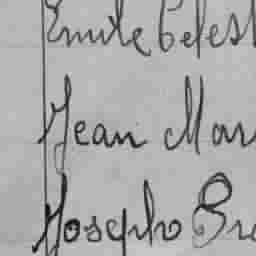 Emile Celest
Jean Mar
Joseph